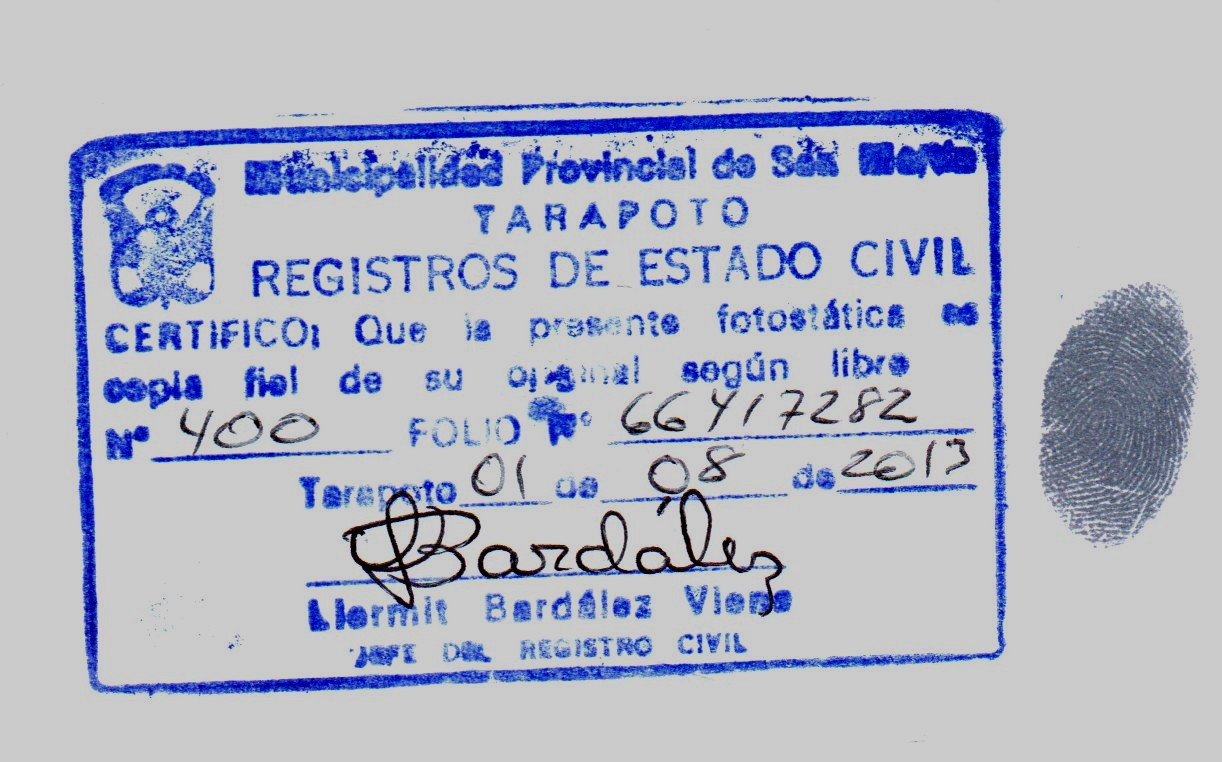 Municipalidad Provincial de San Martín
TARAPOTO
REGISTROS DE ESTADO CIVIL
CERTIFICO: Que la presente fotostática es
copia fiel de su original según libro
Nº 400 FOLIO Nº 66417282
Tarapoto 01 de 08 de 2013
Bardález
Llermit Bardález Viena
JEFE DEL REGISTRO CIVIL